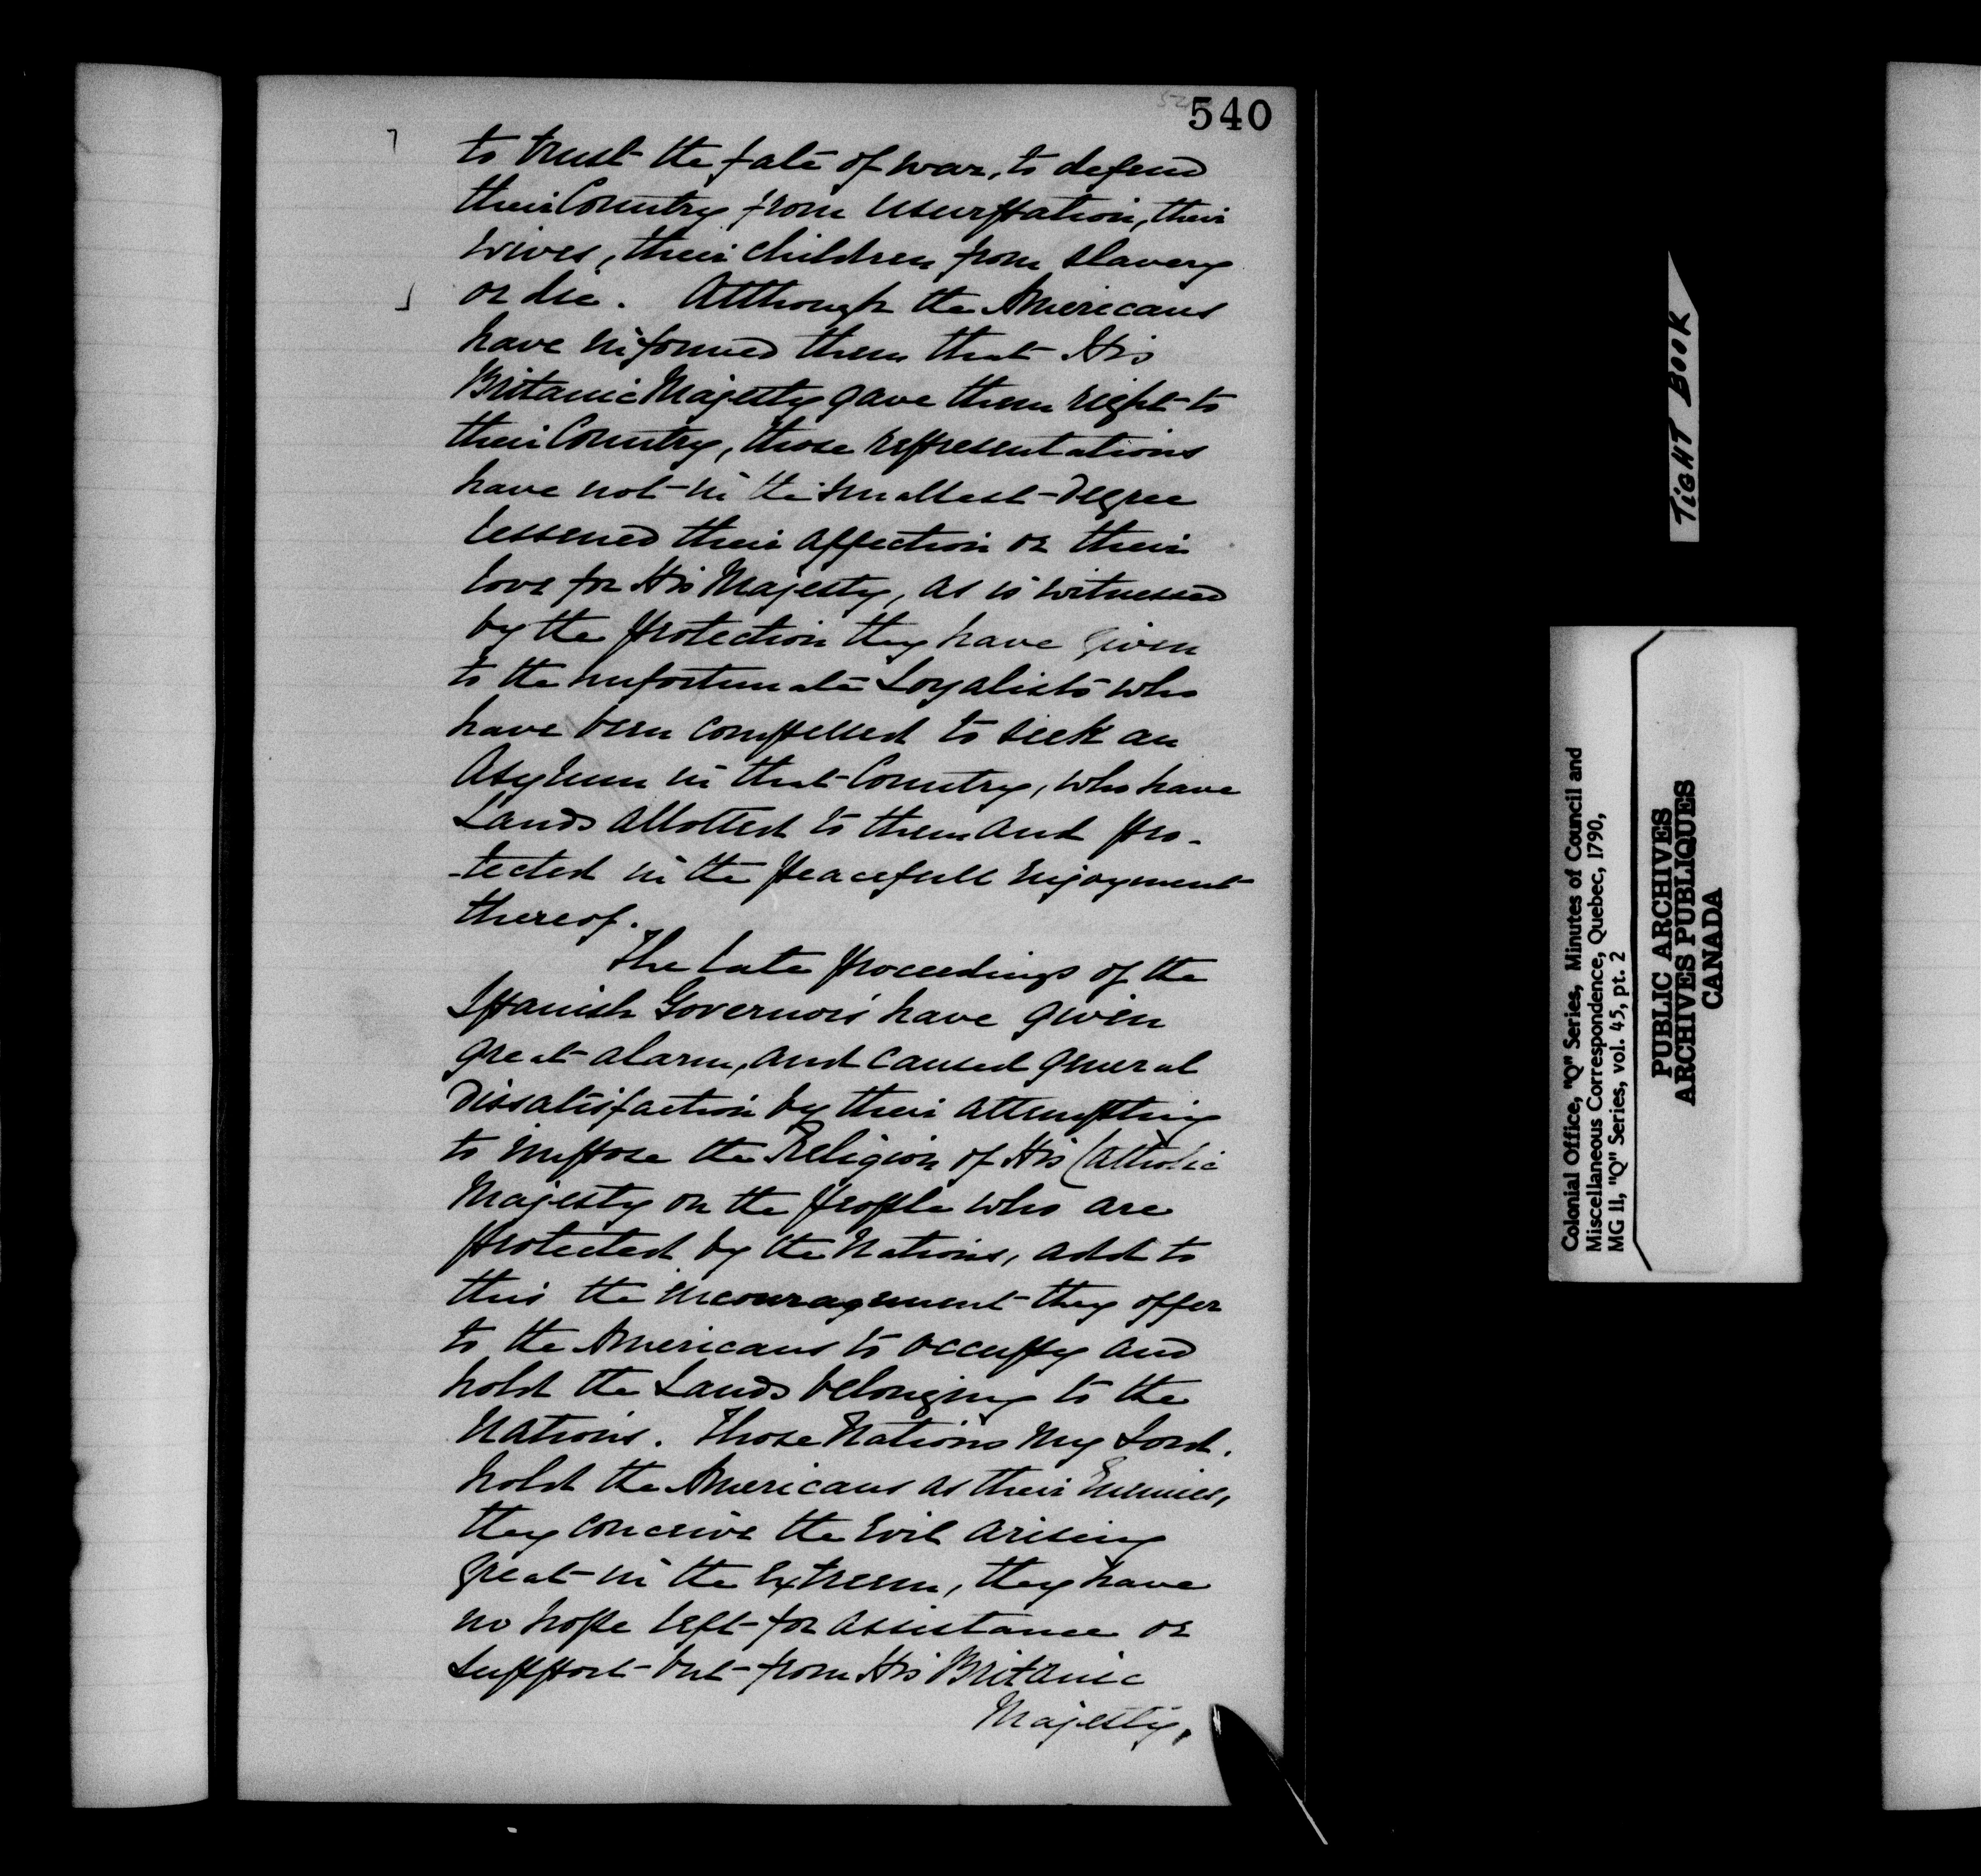 540
to trust the fate of war, to defend
their Country from usurpation, their
wives, their children from slavery
or die. Although the Americans
have informed them that His
Britanic Majesty gave them right to
their Country, those representations
have not in the smallest Degree
lessened their affection or their
love for His Majesty, as is witnessed
by the protection they have given
to the unfortunate Loyalists who
have been compelled to seek an
Asylum in that Country, who have
Lands allotted to them and pro-
-tected in the peacefull enjoyment
thereof.
The late proceedings of the
Spanish Governors have given
great alarm, and caused general
Dissatisfaction by their attempting
to impose the Religion of His Catholic
Majesty on the people who are
protected by the Nations, add to
this the incouragement they offer
to the Americans to occupy and
hold the Lands belonging to the
Nations. Those Nations My Lord.
hold the Americans as their Enemies,
they conceive the Evil arising
great in the Extreem, they have
no hope left for assistance or
support but from His Britanic
Majesty,
TIGHT BOOK
Colonial Office, "Q" Series, Minutes of Council and
Miscellaneous Correspondence, Quebec, 1790,
MG 11, "Q" Series, vol. 45, pt. 2
PUBLIC ARCHIVES
ARCHIVES PUBLIQUES
CANADA